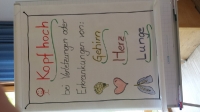 Kopf hoch
bei Verletzungen oder
Erkrankungen von:
Gehirn
Herz
Lunge